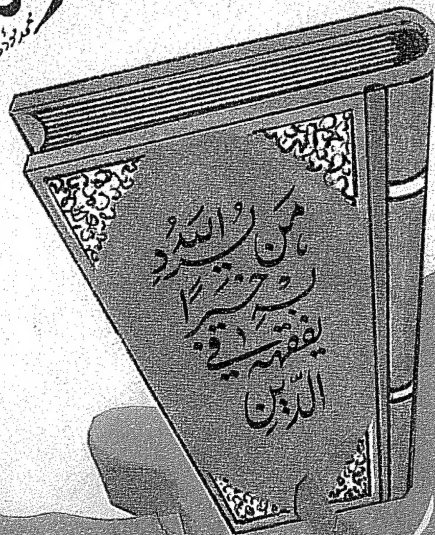 مَن يُرِدِ اللهُ
بِهِ خَيْرًا
يُفَقِّهْهُ فِي
الدِّينِ